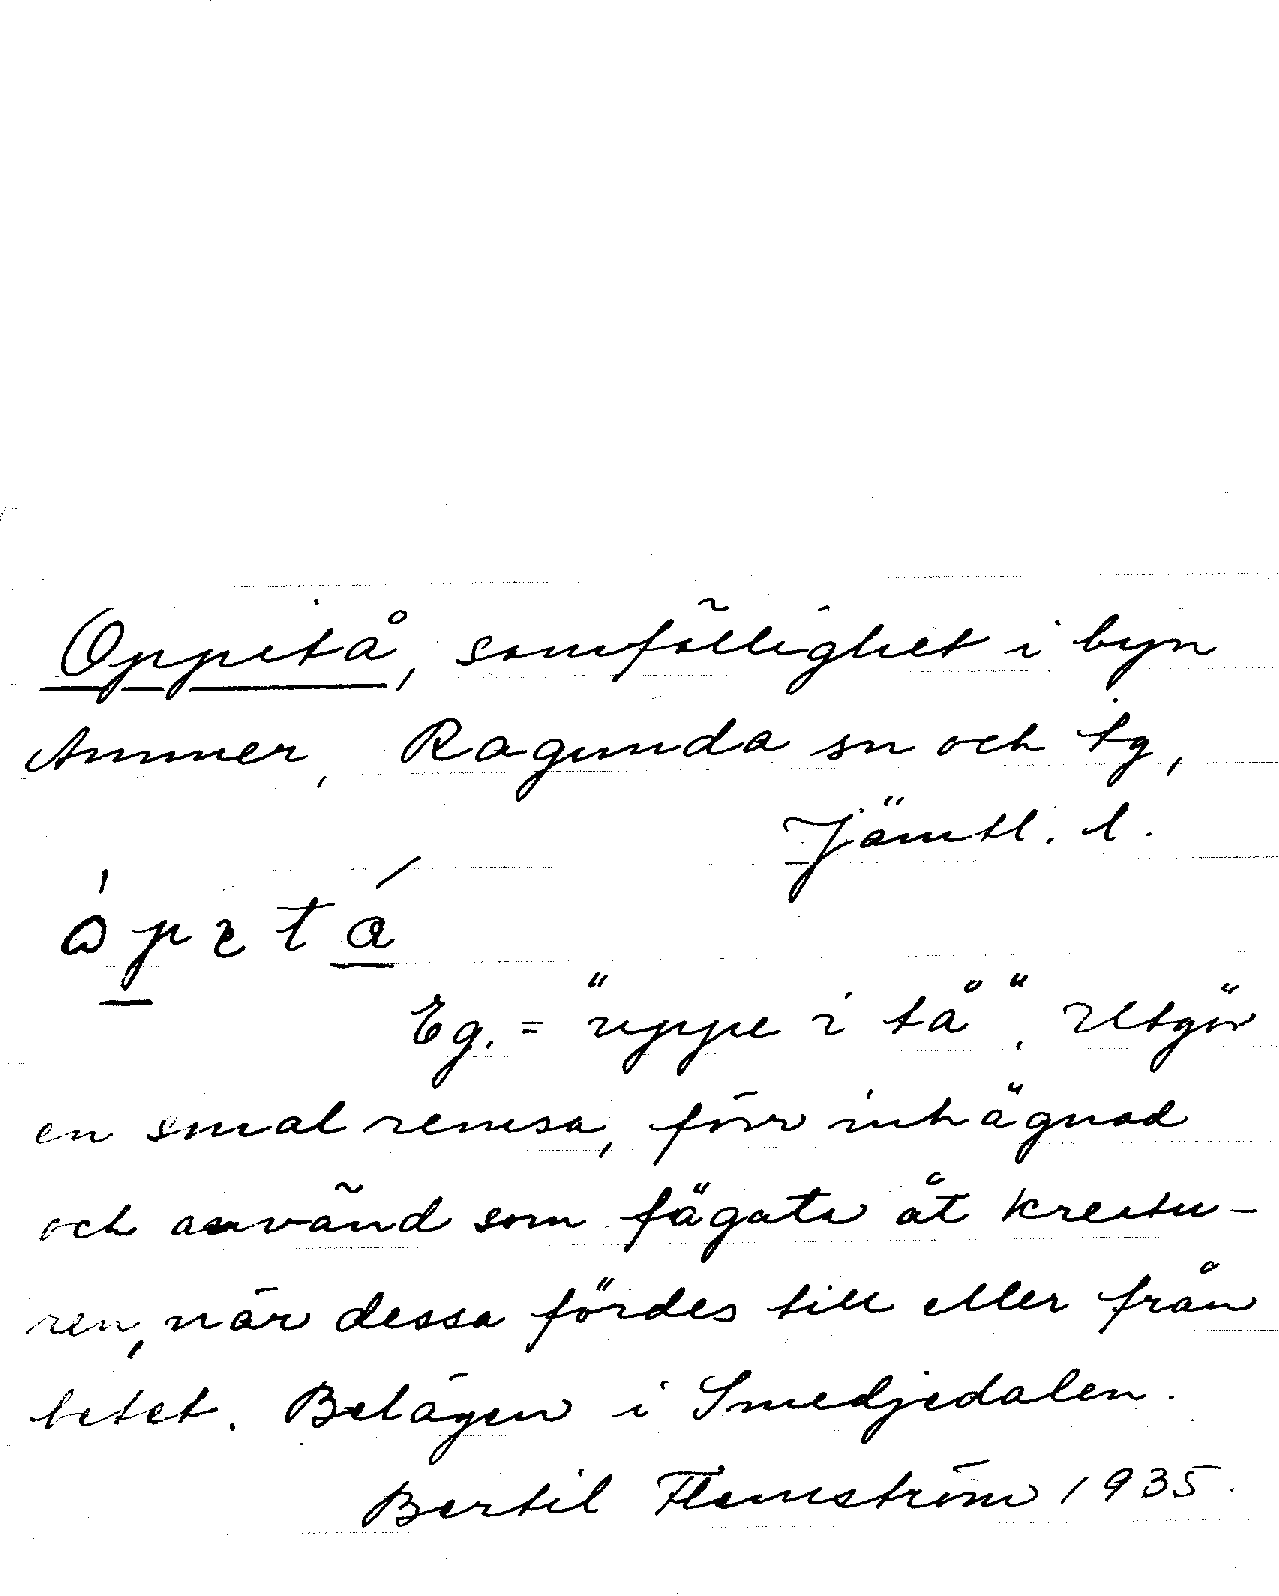 Oppitå, samfällighet i byn
Ammer, Ragunda sn och tg,
Jämtl. l.
Eg. = "uppe i tå". Utgör
en smal remsa, förr inhägnad
och använd som fägata åt kreatu-
ren, när dessa fördes till eller från
betet. Belägen i Smedjedalen.
Bertil Flemström 1935.